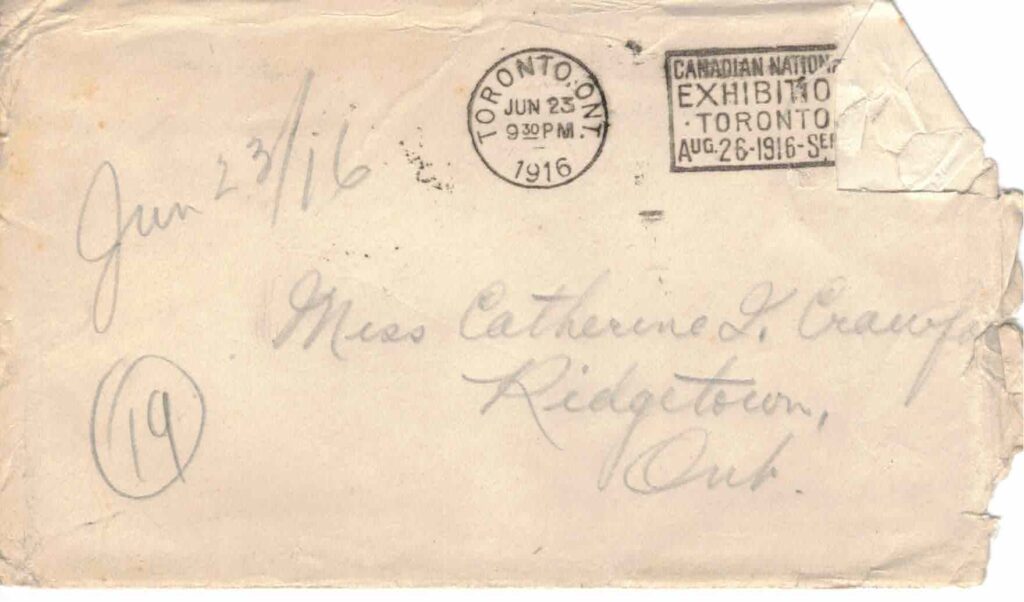 TORONTO. ONT.
JUN 23
9 30 PM.
1916
CANADIAN NATION
EXHIBITIO
· TORONTO
AUG. 26-1916-SEP
Jun 23/16
Miss Catherine I. Crawf
Ridgetown,
Ont.
19